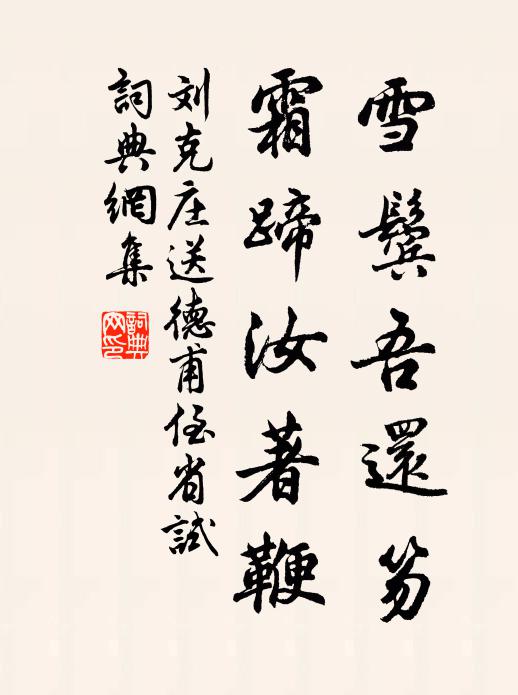 雪鬢吾還笏
霜蹄汝著鞭
刘克庄送德甫侄省試
詞典網集
詞典网印